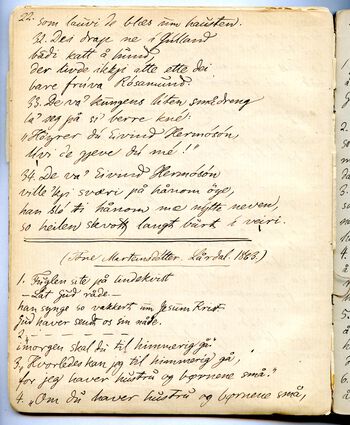 22. som lauvi de blæs um hausten.
32. Dei drap ne i Gulland
både katt å hund,
der livde ikkje atte ette dei
bare frúva Rósamund.
33. De va' kungens liten smådreng
la' seg på si berre kné:
"Höyrer du Eivind Hermosón,
livi de gjeve du mé!"
34. De va' Eivind Hermosón
ville 'kji sværi på hånom öye,
han sló ti hånom me nytte neven,
so heilen skvatt langt burt i veiri.
(Ane Martensdotter. Lårdal. 1863.)
1. Fuglen site på lindekvist
— Lat gud råde. —
han synge so vakkert um Jesum Krist
gud haver sendt os sin nåde.
2.
imorgen skal du til himmerig gå.
3. "Hvorledes kan jeg til himmerig gå,
for jeg haver hustrú og börnene små."
4. "Om du haver hustrú og börnene små,